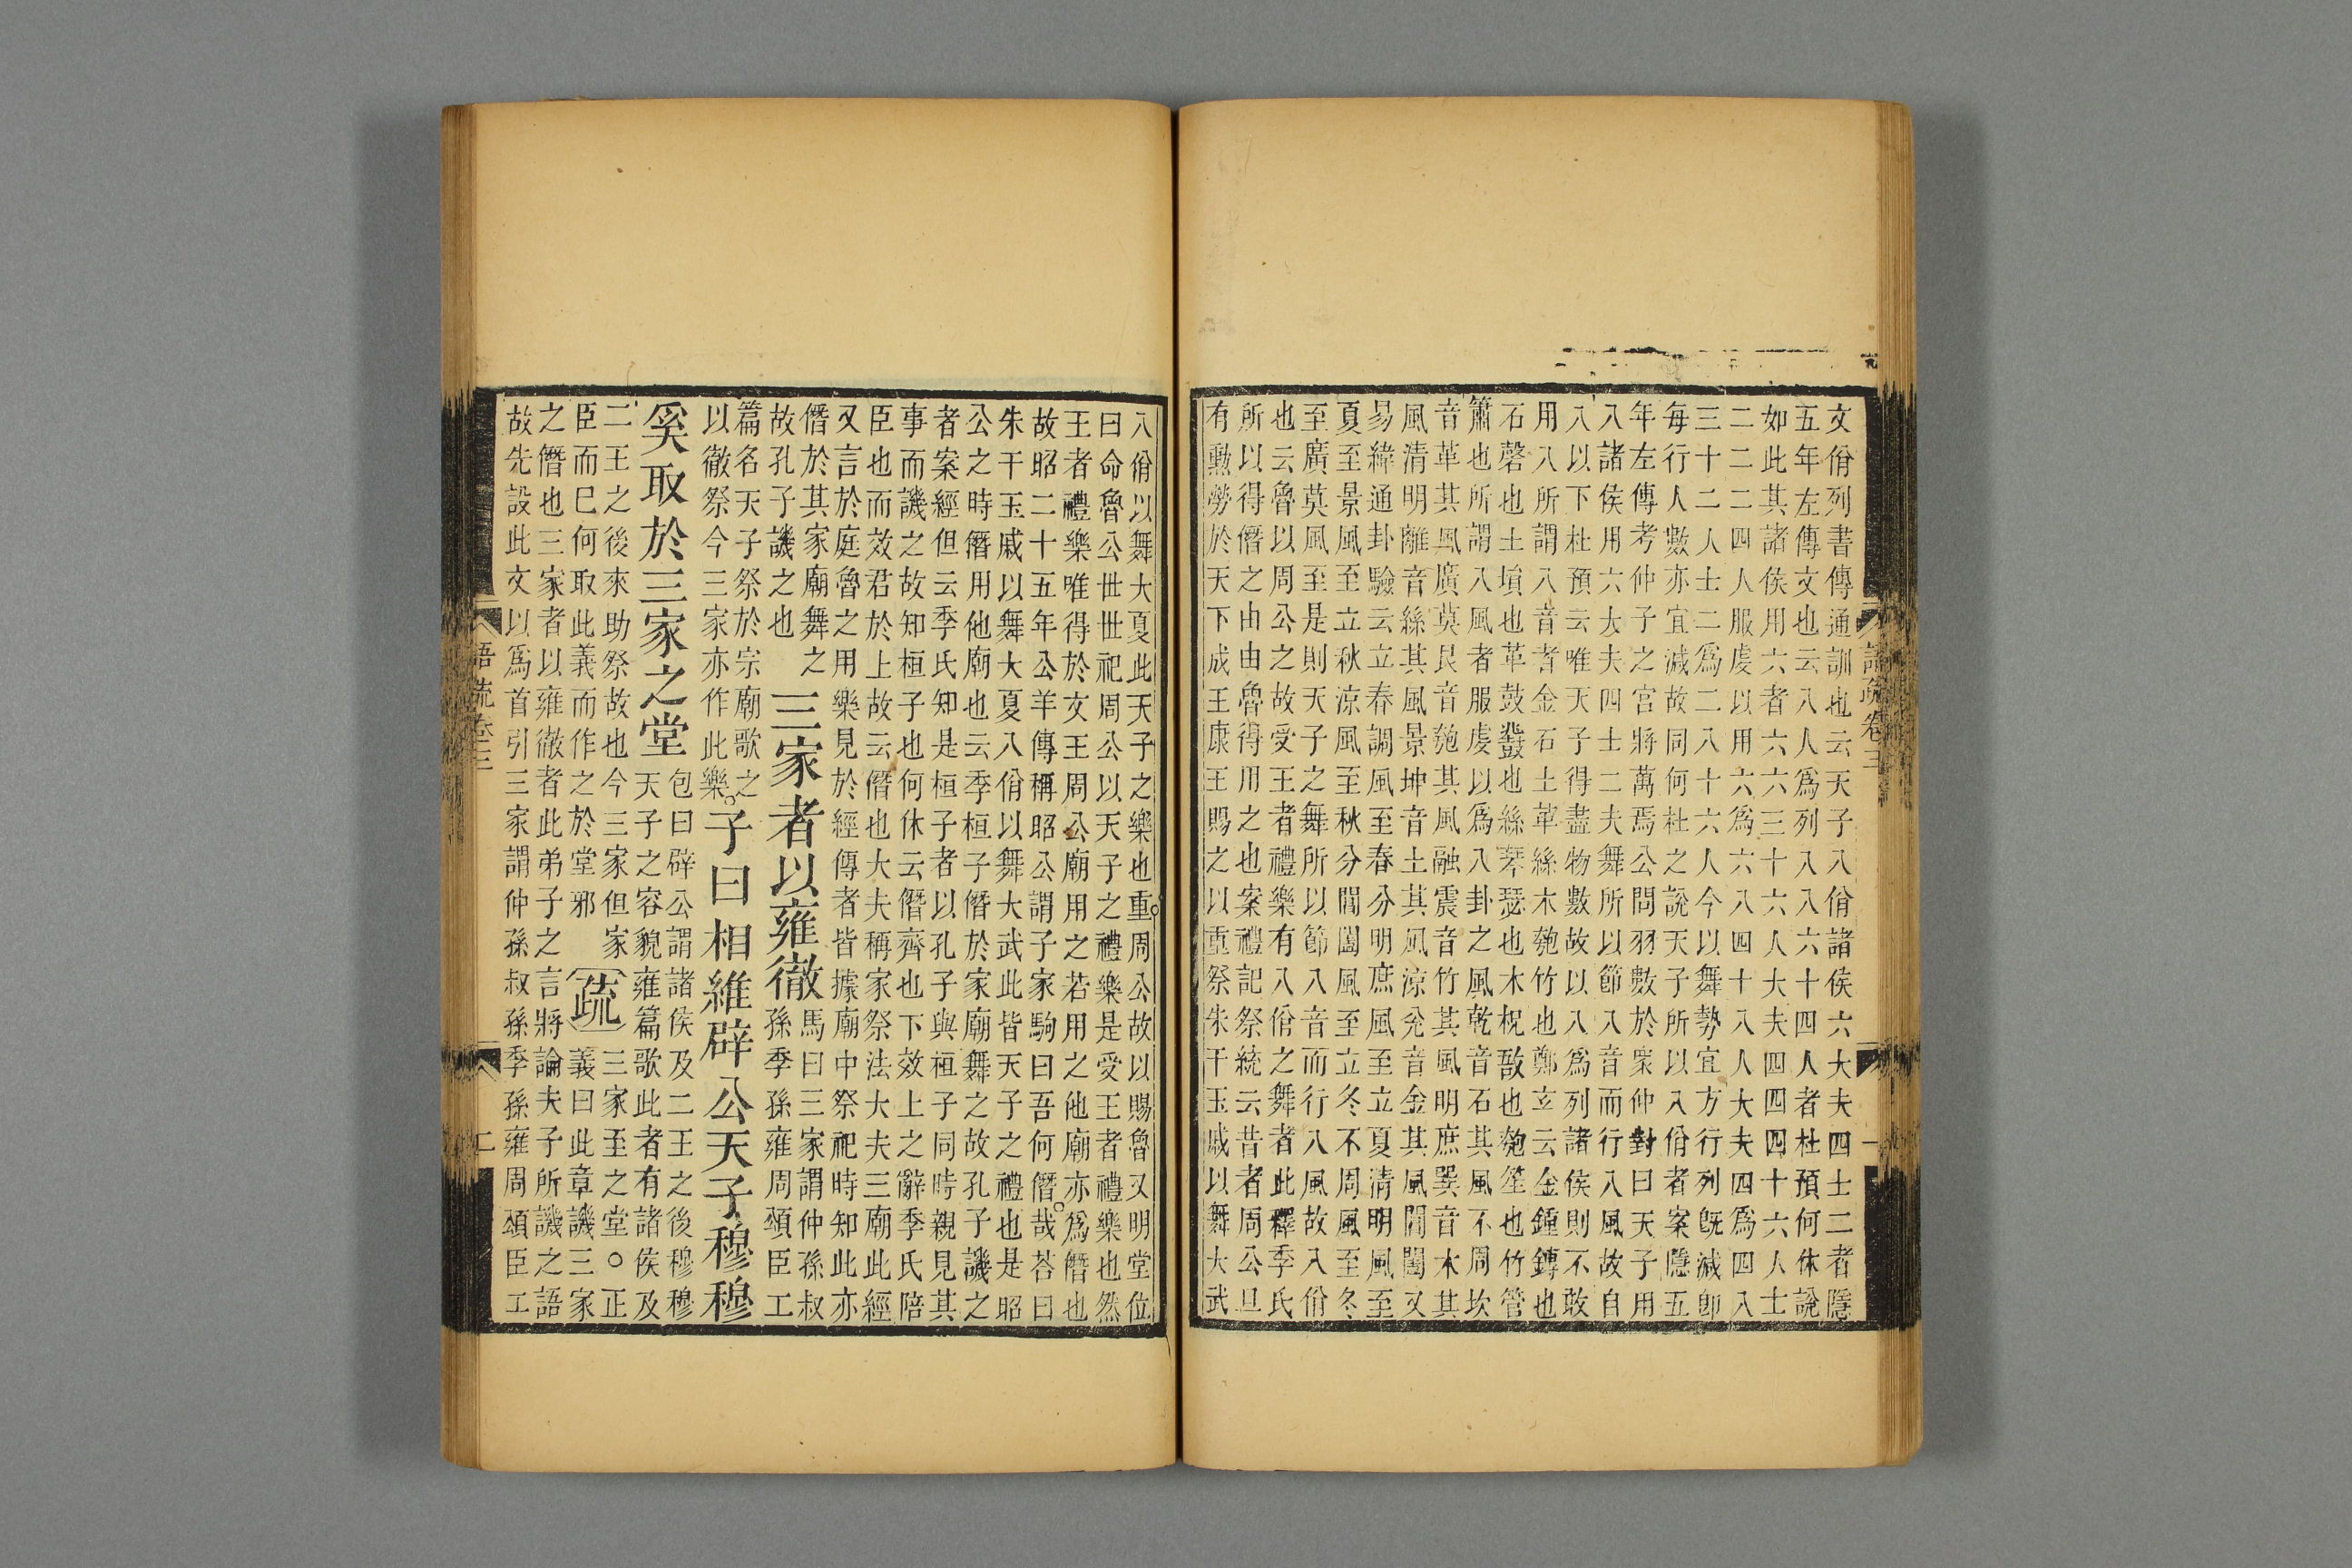 文佾列書傳通訓也云天子八佾諸侯六大夫四士二者隱
五年左傳文也云八人爲列八八六十四人者杜預何休說
如此其諸侯用六者六六三十六人大夫四四十六人士
二二四人服虔以用六爲六八四十八人大夫四爲四八
三十二人士二爲二八十六人今以舞勢宜方行列旣減卽
每行人數亦宜減故同何杜之說天子所以八佾者案隱五
年左傳考仲子之宮將萬焉公問羽數於衆仲對曰天子用
八諸侯用六大夫四士二夫舞所以節八音而行八風故自
八以下杜預云唯天子得盡物數故以八爲列諸侯則不敢
用八所謂八音者金石土革絲木匏竹也鄭玄云金鍾鎛也
石磬也土塤也革鼓鼗也絲琴瑟也木柷敔也匏笙也竹管
簫也所謂八風者服虔以爲八卦之風乾音石其風不周坎
音革其風廣莫艮音匏其風融震音竹其風明庶巽音木其
風清明離音絲其風景坤音土其風涼兊音金其風閶闔又
易緯通卦驗云立春調風至春分明庶風至立夏清明風至
夏至景風至立秋涼風至秋分閶闔風至立冬不周風至冬
至廣莫風至是則天子之舞所以節八音而行八風故八佾
也云魯以周公之故受王者禮樂有八佾之舞者此釋季氏
所以得僭之由由魯得用之也案禮記祭統云昔者周公旦
有勳勞於天下成王康王賜之以重祭朱干玉戚以舞大武
語疏卷三
一
八佾以舞大夏此天子之樂也重周公故以賜魯又明堂位
曰命魯公世世祀周公以天子之禮樂是受王者禮樂也然
王者禮樂唯得於文王周公廟用之若用之他廟亦爲僭也
故昭二十五年公羊傳稱昭公謂子家駒曰吾何僭哉荅曰
朱干玉戚以舞大夏八佾以舞大武此皆天子之禮也是昭
公之時僭用他廟也云季桓子僭於家廟舞之故孔子譏之
者案經但云季氏知是桓子者以孔子與桓子同時親見其
事而譏之故知桓子也何休云僭齊也下效上之辭季氏陪
臣也而效君於上故云僭也大夫稱家祭法大夫三廟此經
又言於庭魯之用樂見於經傳者皆據廟中祭祀時知此亦
僭於其家廟舞之
故孔子譏之也
三家者以雍徹
馬曰三家謂仲孫叔
孫季孫雍周頌臣工
篇名天子祭於宗廟歌之
以徹祭今三家亦作此樂
子曰相維辟公天子穆穆
奚取於三家之堂
包曰辟公謂諸侯及二王之後穆穆
天子之容貌雍篇歌此者有諸侯及
二王之後來助祭故也今三家但家
臣而巳何取此義而作之於堂邪
疏
三家至之堂○正
義曰此章譏三家
之僭也三家者以雍徹者此弟子之言將論夫子所譏之語
故先設此文以爲首引三家謂仲孫叔孫季孫雍周頌臣工
語疏卷三
二